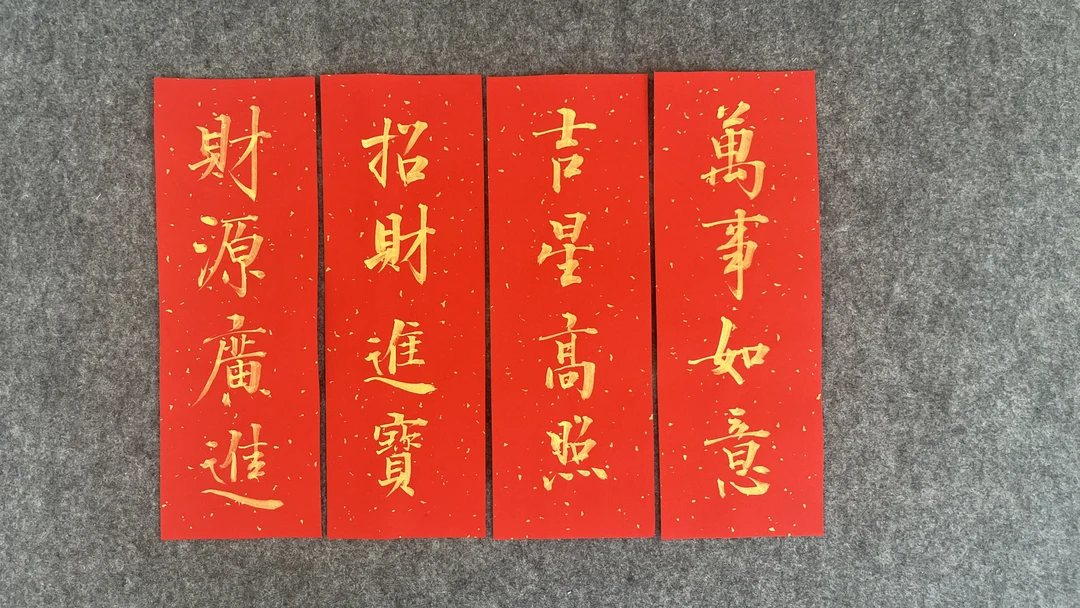 萬事如意
吉星高照
招財進寶
財源廣進